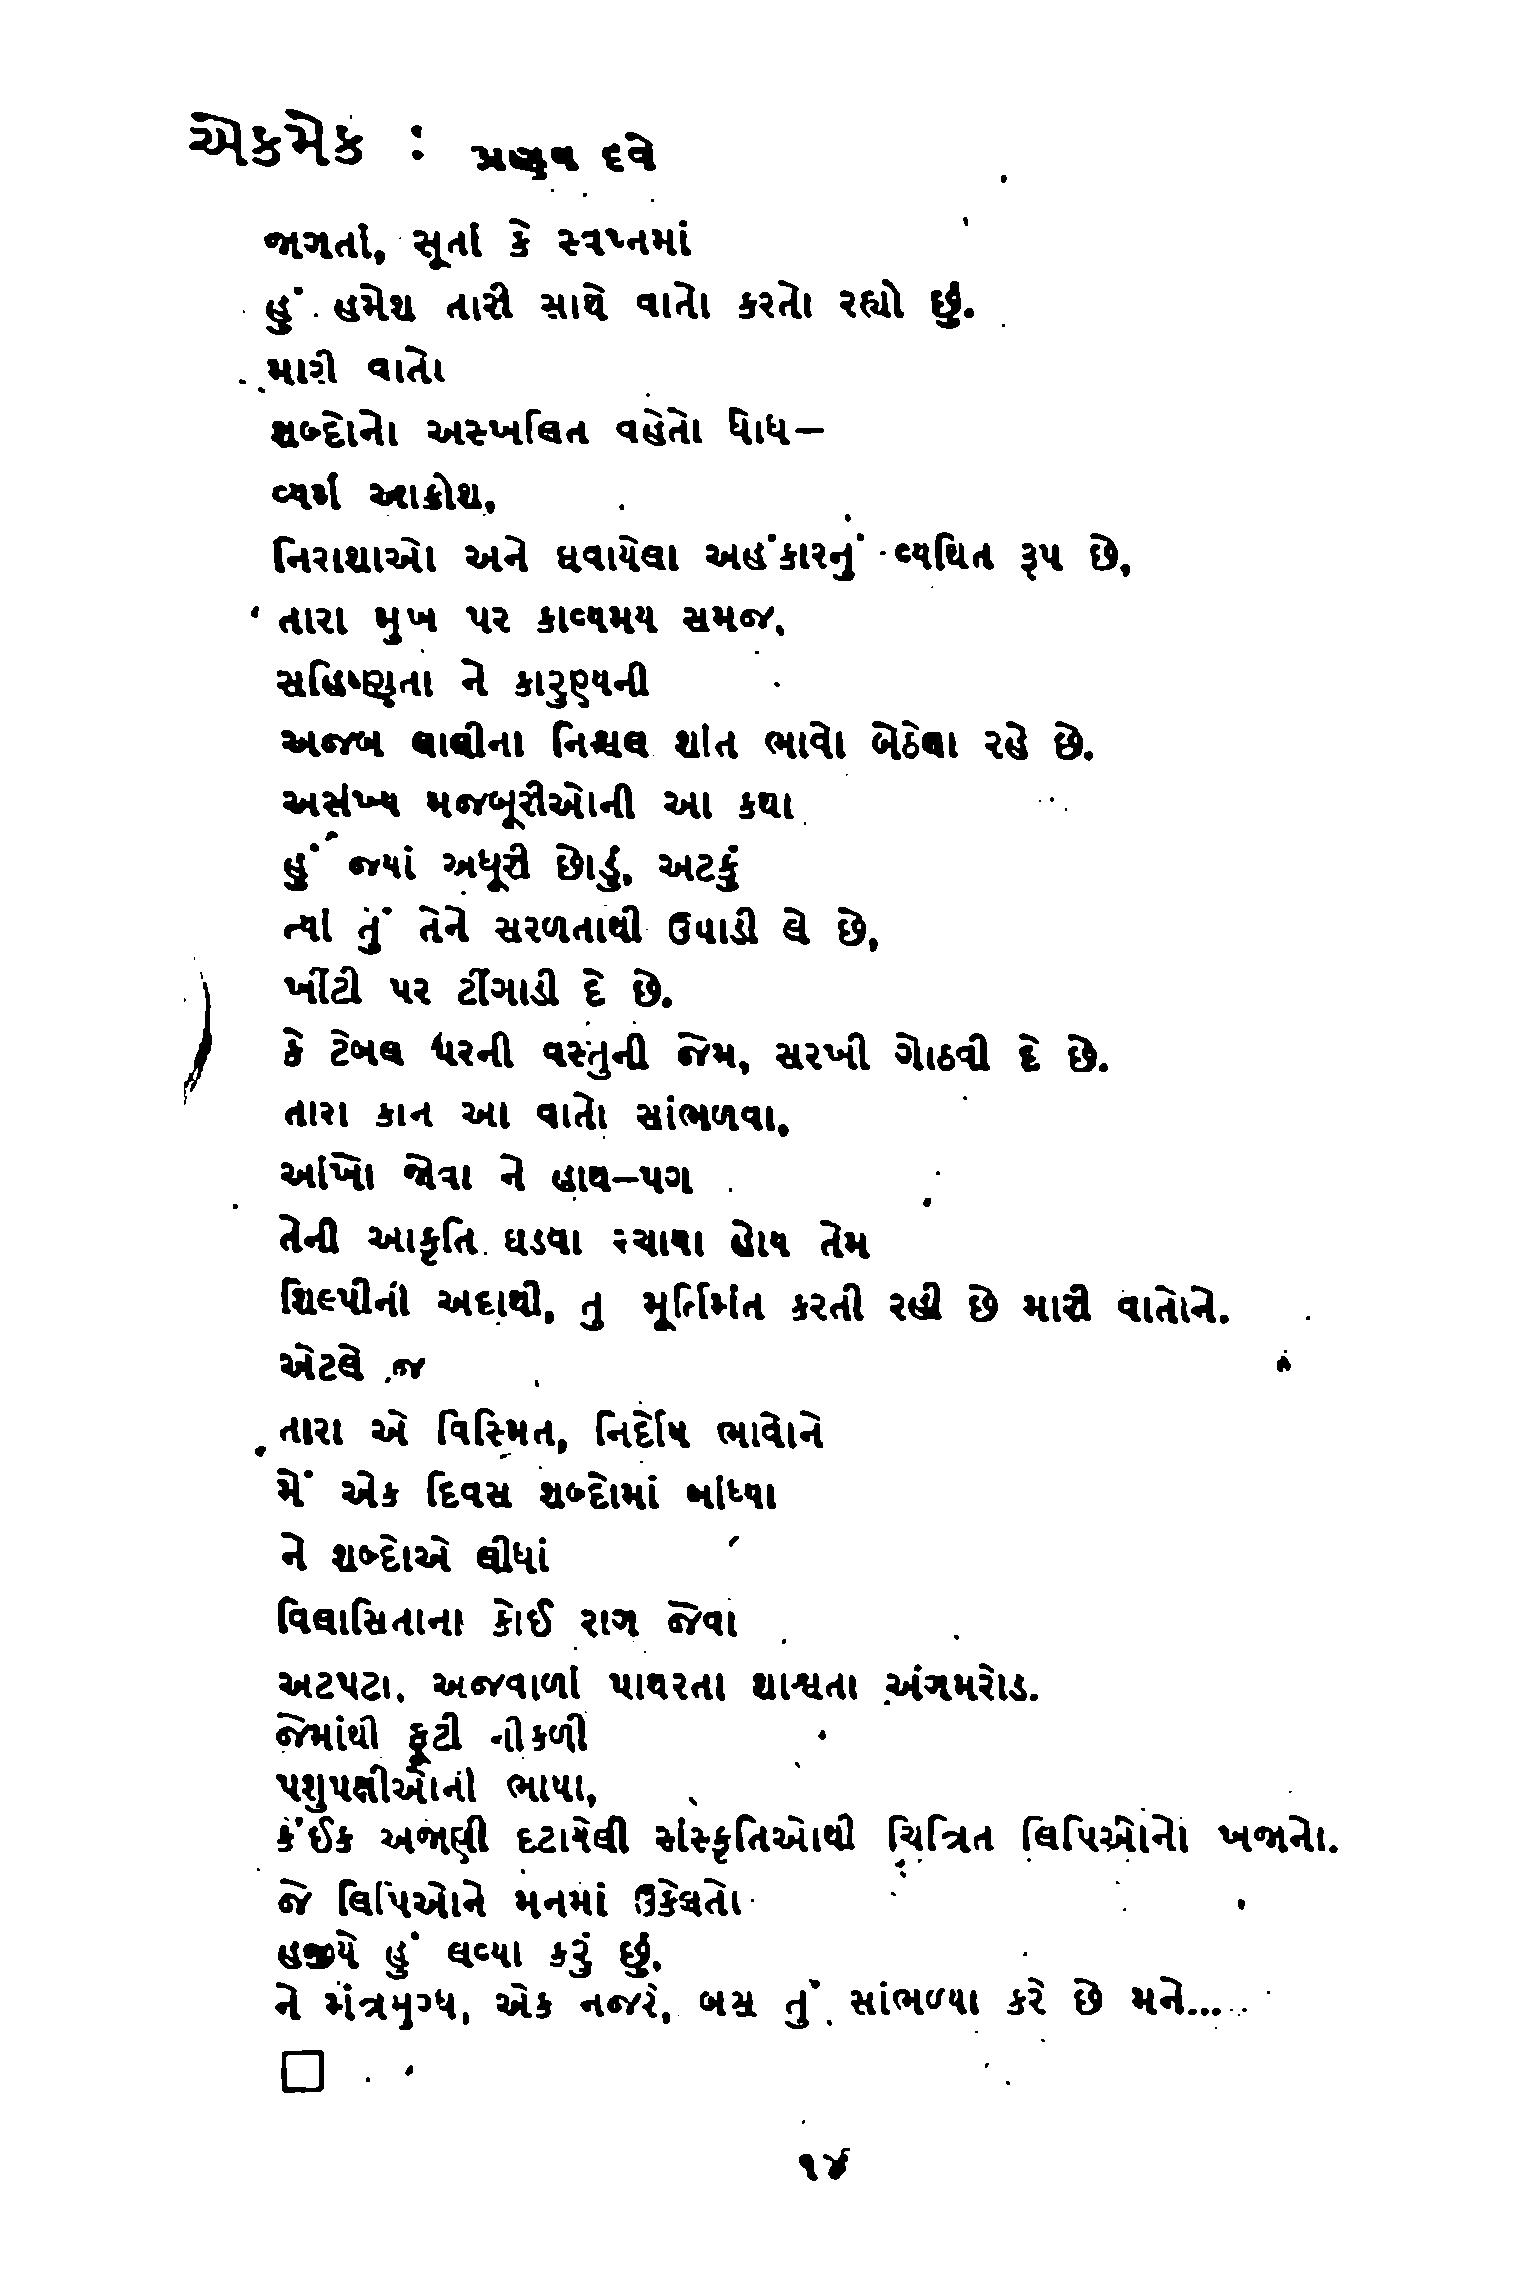 એકમેક : પ્રણવ દવે
જાગતાં, સૂતાં કે સ્વપ્નમાં
હું હમેશ તારી સાથે વાતો કરતો રહ્યો છું.
મારી વાતો
શબ્દોનો અસ્ખલિત વહેતો ધોધ—
વ્યર્થ આક્રોશ,
નિરાશાઓ અને ઘવાયેલા અહંકારનું વ્યથિત રૂપ છે,
તારા મુખ પર કાવ્યમય સમજ,
સહિષ્ણુતા ને કારુણ્યની
અજબ લાલીના નિશ્ચલ શાંત ભાવો બેઠેલા રહે છે.
અસંખ્ય મજબૂરીઓની આ કથા
હું જ્યાં અધૂરી છોડું, અટકું
ત્યાં તું તેને સરળતાથી ઉપાડી લે છે,
ખીંટી પર ટીંગાડી દે છે.
કે ટેબલ પરની વસ્તુની જેમ, સરખી ગોઠવી દે છે.
તારા કાન આ વાતો સાંભળવા,
આંખો જોવા ને હાથ—પગ
તેની આકૃતિ ઘડવા રચાયા હોય તેમ
શિલ્પીની અદાથી, તુ મૂર્તિમંત કરતી રહી છે મારી વાતોને.
એટલે જ
તારા એ વિસ્મિત, નિર્દોષ ભાવોને
મેં એક દિવસ શબ્દોમાં બાંધ્યા
ને શબ્દોએ લીધાં
વિલાસિતાના કોઈ રાગ જેવા
અટપટા, અજવાળાં પાથરતા શાશ્વતા અંગમરોડ.
જેમાંથી ફૂટી નીકળી
પશુપક્ષીઓની ભાષા,
કંઈક અજાણી દટાયેલી સંસ્કૃતિઓથી ચિત્રિત લિપિઓનો ખજાનો.
જે લિપિઓને મનમાં ઉકેલતો
હજીયે હું લવ્યા કરું છું,
ને મંત્રમુગ્ધ, એક નજરે, બસ તું સાંભળ્યા કરે છે મને...
૧૪